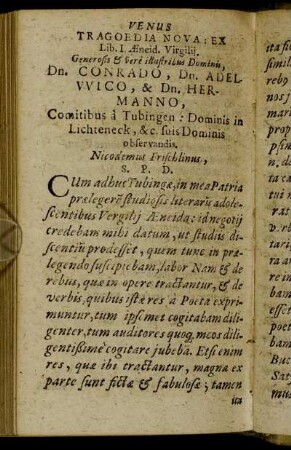 VENUS
TRAGOEDIA NOVA: EX
Lib. I. Æneid. Virgilij.
Generosis & verè illustribus Dominis,
Dn. CONRADO, Dn. ADEL-
VVICO, & Dn. HER-
MANNO,
Comitibus à Tubingen: Dominis in
Lichteneck, &c. suis Dominis
observandis.
Nicodemus Frischlinus,
S. P. D.
CUm adhuc Tubingæ, in mea Patria
prælegerẽ studiosis literarũ adole-
scentibus Vergilij Æneida: id negotij
credebam mihi datum, ut studiis di-
scentiũ prodesset, quem tunc in præ-
legendo suscipiebam, labor. Nam & de
rebus, quæ in opere tractantur, & de
verbis, quibus istæ res à Poeta expri-
muntur, tum ipse met cogitabam dili-
genter, tum auditores quoq; meos dili-
gentißimè cogitare jubebã. Etsi enim
res, quæ ibi tractantur, magna ex
parte sunt fictæ & fabulosæ; tamen
ita